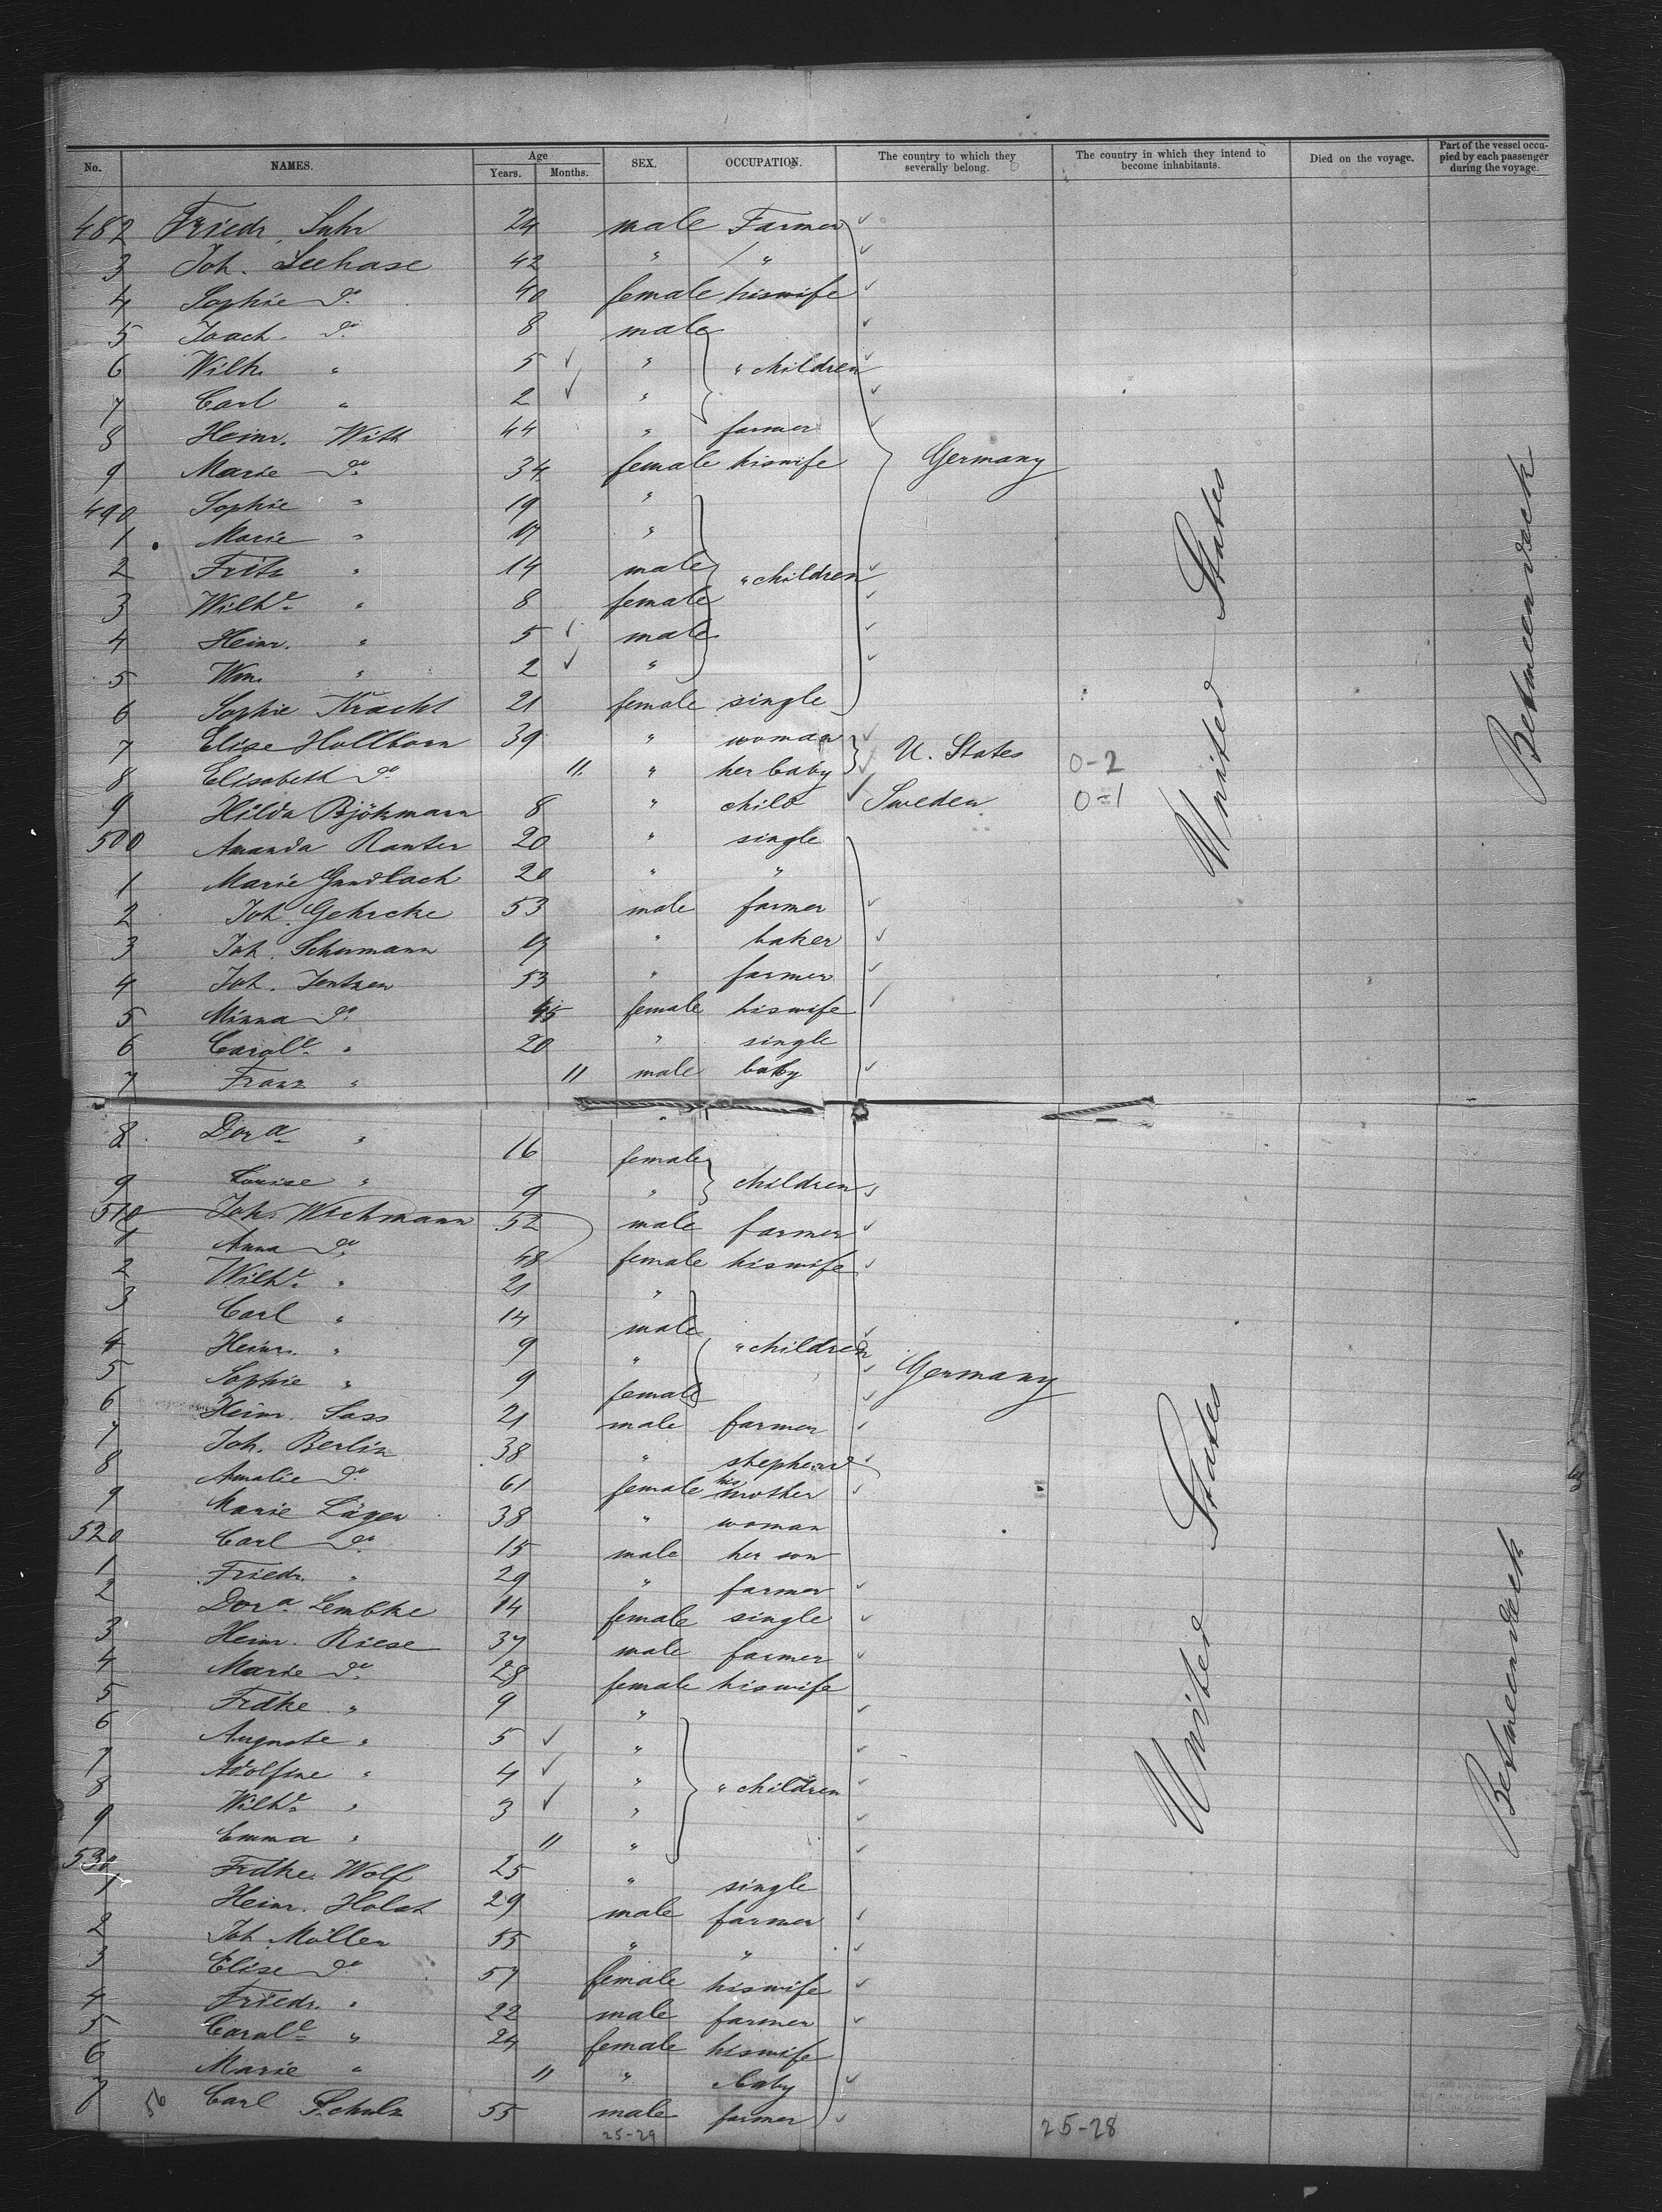 No. NAMES. Age Years. Months. SEX. OCCUPATION. The country to which they severally belong. The country in which they intend to become inhabitants. Died on the voyage. Part of the vessel occupied by each passenger during the voyage.
482 Friedr. Suhr 24 male Farmer
3 Joh. Seehase 42 " "
4 Sophie do 40 female his wife
5 Joach. do 8 male
6 Wilh. " 5 " " children
7 Carl " 2 "
8 Heinr. Witt 44 " farmer
9 Marie do 34 female his wife Germany
490 Sophie " 19 "
1 Marie " 17 "
2 Fritz " 14 male " children
3 Wilhe " 8 female
4 Heinr. " 5 male
5 Wm. " 2 "
6 Sophie Kracht 21 female single
7 Elise Hollborn 39 " woman U. States
8 Elisabeth do 11. " her baby 0-2
9 Hilda Björkmann 8 " child Sweden 0-1
500 Amanda Ranter 20 " single
1 Marie Gundlach 20 " "
2 Joh. Gehrcke 53 male farmer
3 Joh. Schumann 17 " baker
4 Joh. Jentzen 53 " farmer
5 Minna do 45 female his wife
6 Carole " 20 " single
7 Franz " 11 male baby
United States
Betweendeck
8 Dora " 16 female
9 Louise " 9 " children
510 Joh. Wichmann 52 male farmer
1 Anna do 48 female his wife
2 Wilhe " 21 "
3 Carl " 14 male
4 Heinr. " 9 " " children
5 Sophie " 9 female Germany
6 Heinr. Sass 21 male farmer
7 Joh. Berlin 38 " shepherd
8 Amalie do 61 female his mother
9 Marie Lägen 38 " woman
520 Carl do 15 male her son
1 Friedr. " 29 " farmer
2 Dora Lembke 14 female single
3 Heinr. Riese 37 male farmer
4 Marie do 28 female his wife
5 Frdke. " 9 "
6 Auguste " 5 "
7 Adolfine " 4 " " children
8 Wilhe " 3 "
9 Emma " 11 "
530 Frdke. Wolf 25 " single
1 Heinr. Holst 29 male farmer
2 Joh. Möller 55 " "
3 Elise do 57 female his wife
4 Friedr. " 22 male farmer
5 Carole " 24 female his wife
6 Marie " 11 " baby
7 56 Carl Schulz 55 male farmer
United States
Betweendeck
25-29 25-28